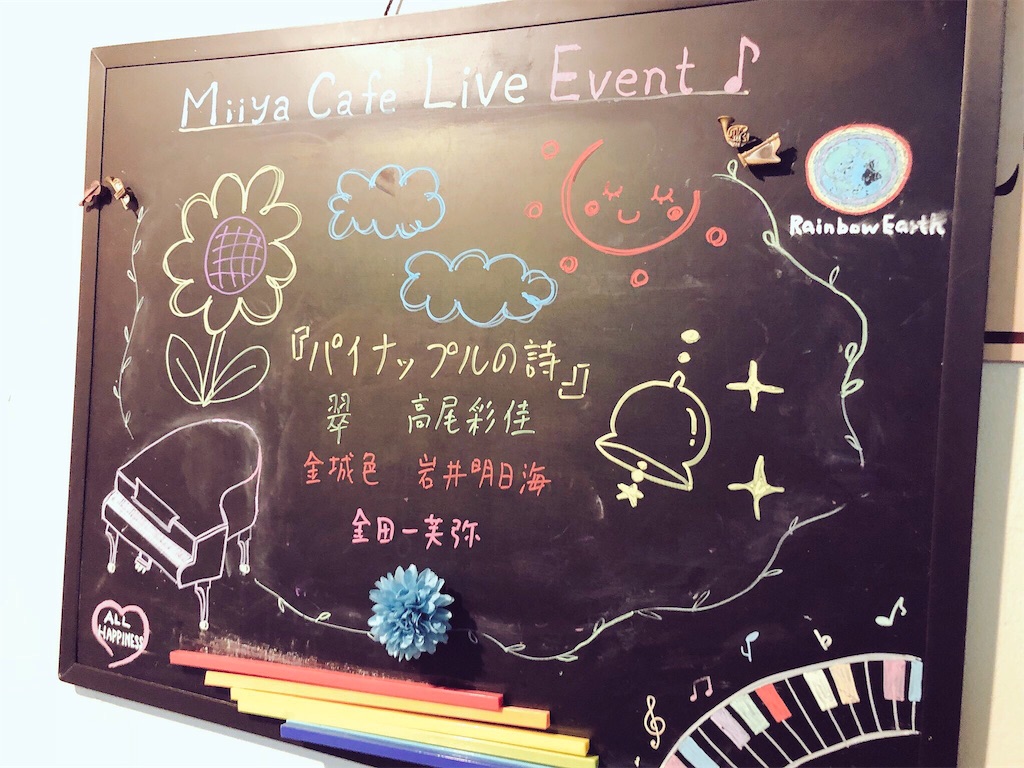 Miiya Cafe Live Event♪
Rainbow Earth
『パイナップルの詩』
翠 高尾彩佳
金城色 岩井明日海
金田一芙弥
ALL
HAPPINESS